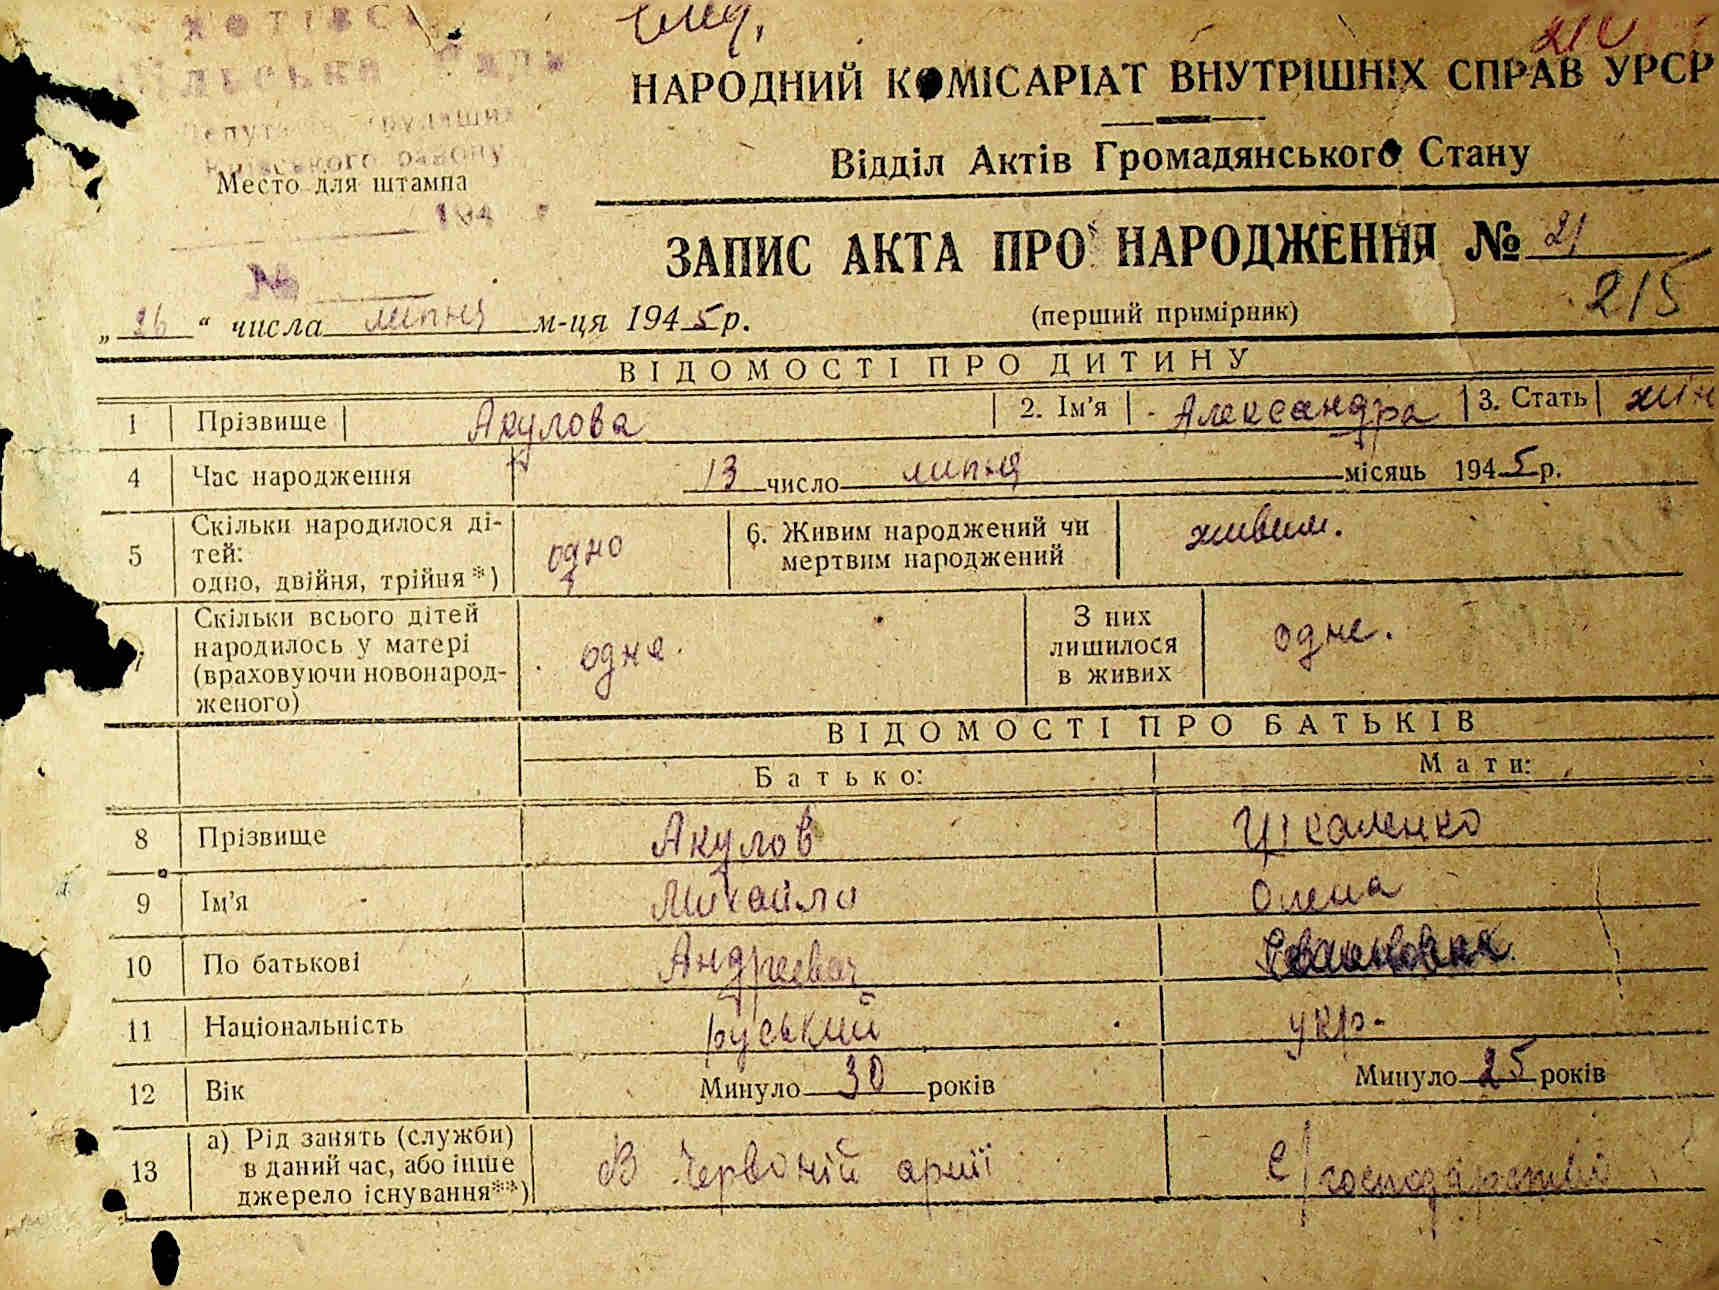 Сільська Рада
Депутатів трудящих
Київського району
Место для штампа
194
№
НАРОДНИЙ КОМІСАРІАТ ВНУТРІШНІХ СПРАВ УРСР
Відділ Актів Громадянського Стану
ЗАПИС АКТА ПРО НАРОДЖЕННЯ № 21
215
„26“ числа липня м-ця 1945 р.
(перший примірник)
ВІДОМОСТІ ПРО ДИТИНУ
1 Прізвище Акулова 2. Ім'я Александра 3. Стать жін
4 Час народження 13 число липня місяць 1945 р.
5 Скільки народилося ді-
тей:
одно, двійня, трійня*) одно
6. Живим народжений чи
мертвим народжений живим.
7 Скільки всього дітей
народилось у матері
(враховуючи новонарод-
женого) одне.
З них
лишилося
в живих одне.
ВІДОМОСТІ ПРО БАТЬКІВ
Батько: Мати:
8 Прізвище Акулов Цікаленко
9 Ім'я Михайло Олена
10 По батькові Андреевич
11 Національність руський укр.
12 Вік Минуло 30 років Минуло 25 років
13 а) Рід занять (служби)
в даний час, або інше
джерело існування**)
В Червоній армії С/господарстві